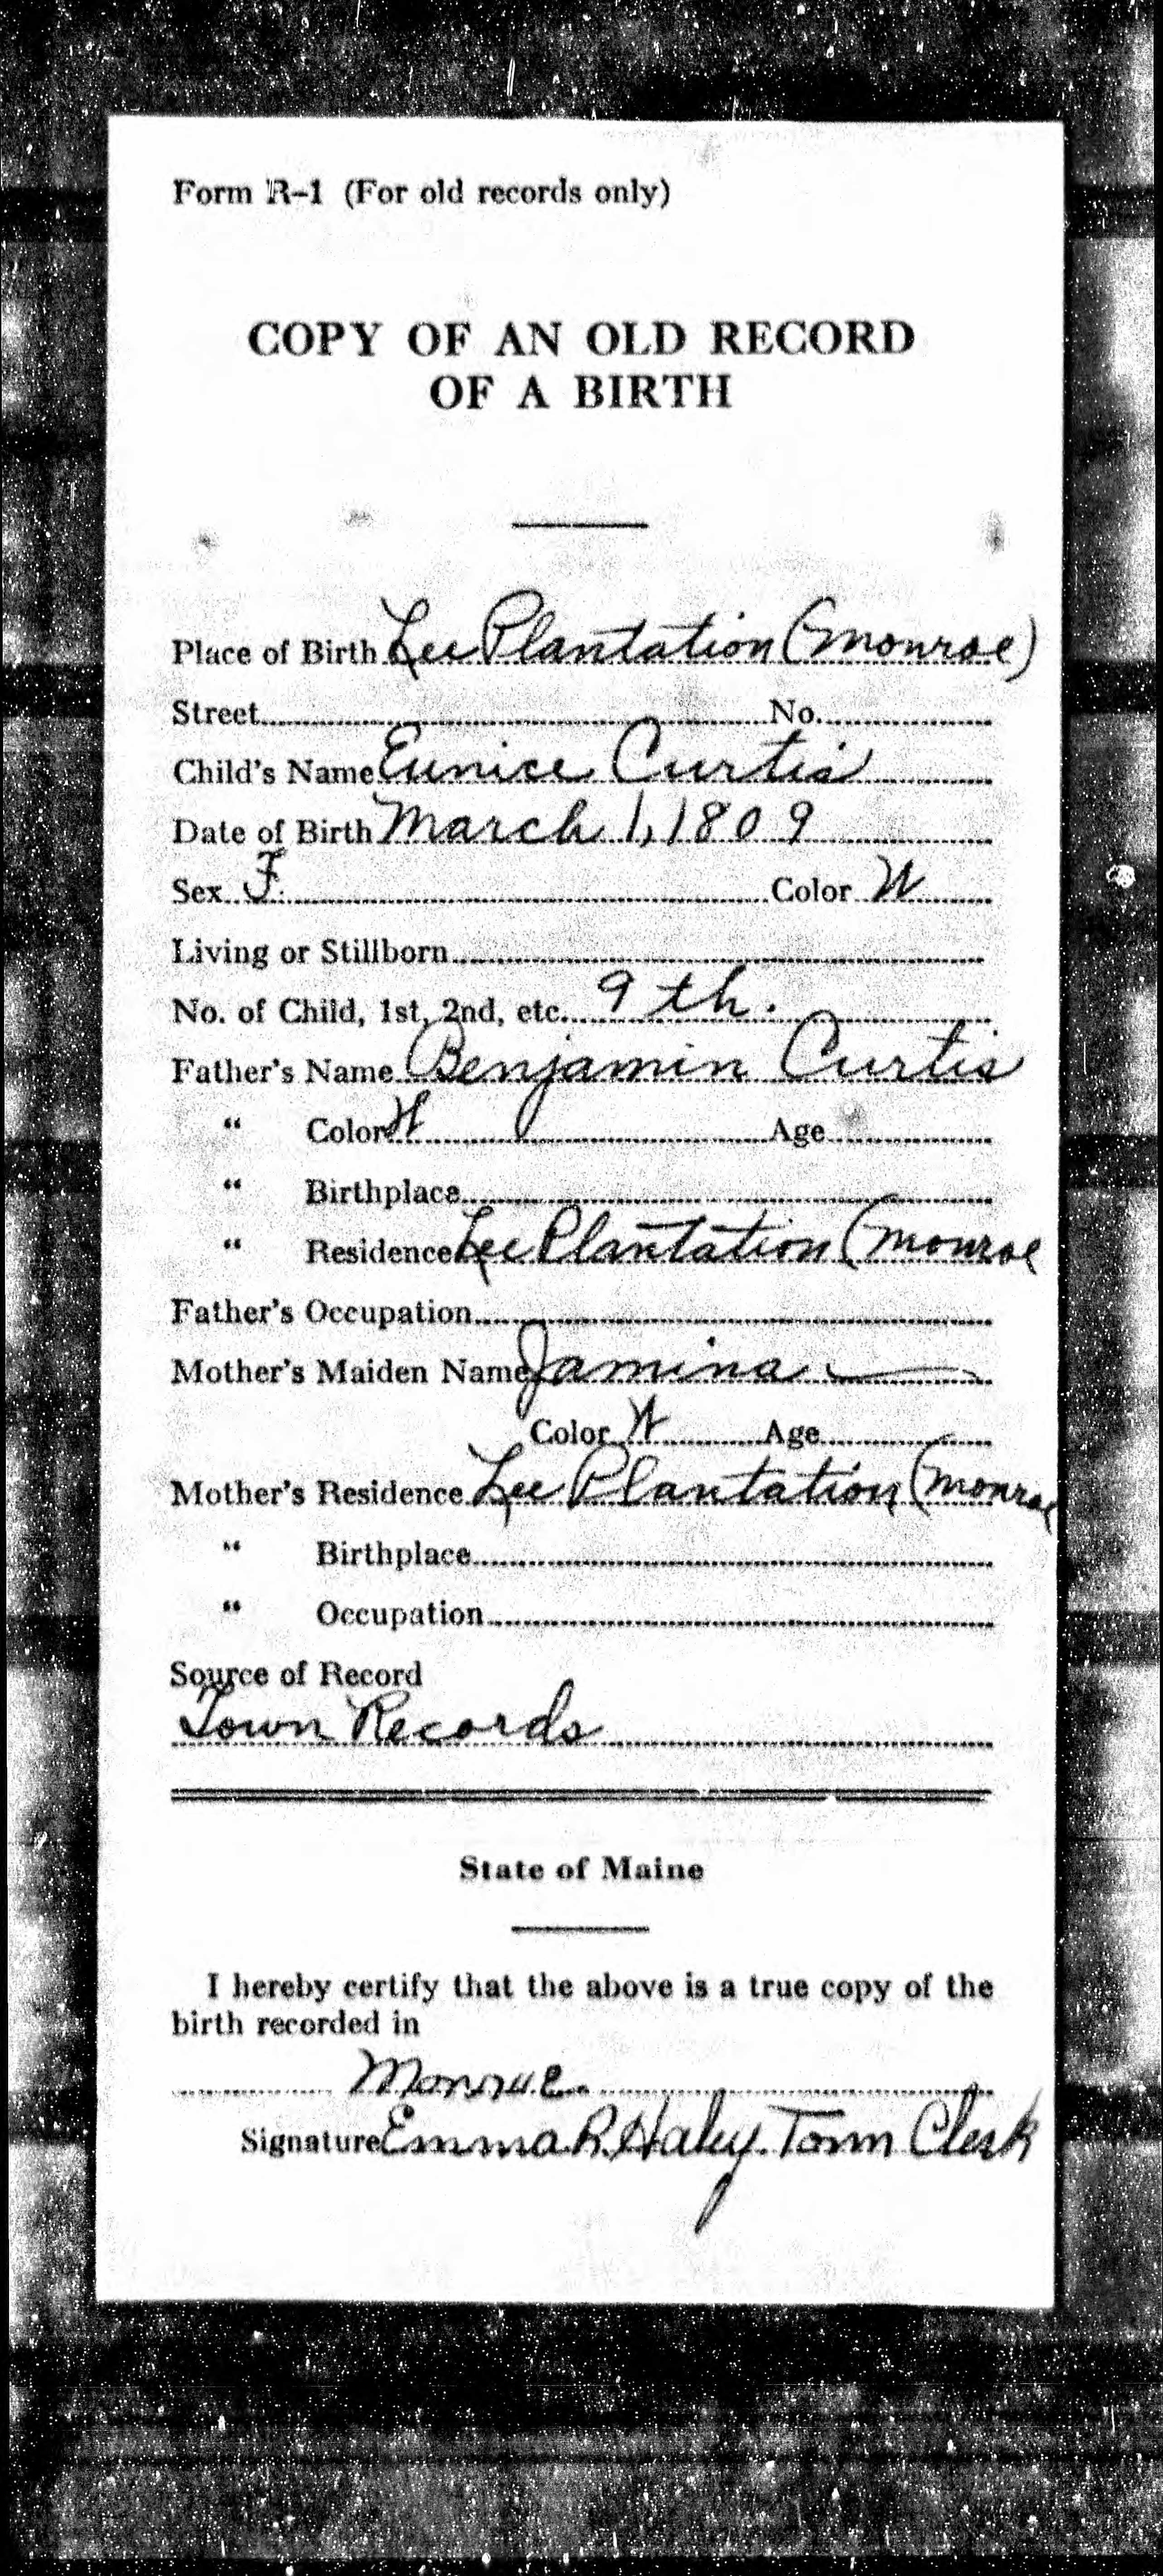 Form R-1 (For old records only)
COPY OF AN OLD RECORD
OF A BIRTH
Place of Birth Lee Plantation (Monroe)
Street No.
Child's Name Eunice Curtis
Date of Birth March 1, 1809
Sex F. Color W
Living or Stillborn
No. of Child, 1st, 2nd, etc. 9th.
Father's Name Benjamin Curtis
“ Color W Age
“ Birthplace
“ Residence Lee Plantation (Monroe
Father's Occupation
Mother's Maiden Name Jamina —
Color W Age
Mother's Residence Lee Plantation (Monroe
“ Birthplace
“ Occupation
Source of Record
Town Records
State of Maine
I hereby certify that the above is a true copy of the
birth recorded in
Monroe
Signature Emma R. Haley. Town Clerk